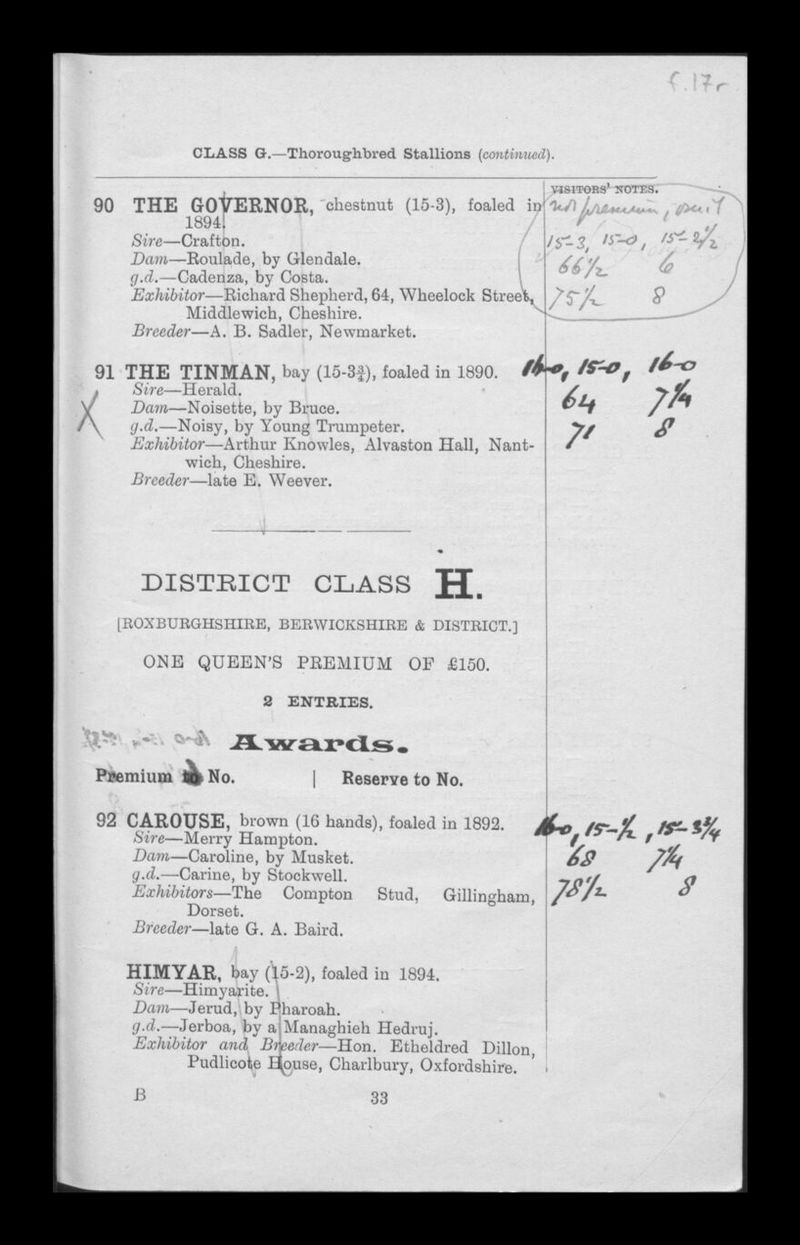 f.17r
CLASS G.—Thoroughbred Stallions (continued).
VISITORS' NOTES.
90 THE GOVERNOR, chestnut (15-3), foaled in
1894.
not premium, omit
Sire—Crafton.
15-3, 15-0, 15-2½
Dam—Roulade, by Glendale.
66½ 6
g.d.—Cadenza, by Costa.
Exhibitor—Richard Shepherd, 64, Wheelock Street,
75½ 8
Middlewich, Cheshire.
Breeder—A. B. Sadler, Newmarket.
91 THE TINMAN, bay (15-3¾), foaled in 1890.
16-0, 15-0, 16-0
Sire—Herald.
X
Dam—Noisette, by Bruce.
64 7¼
g.d.—Noisy, by Young Trumpeter.
71 8
Exhibitor—Arthur Knowles, Alvaston Hall, Nant-
wich, Cheshire.
Breeder—late E. Weever.
DISTRICT CLASS H.
[ROXBURGHSHIRE, BERWICKSHIRE & DISTRICT.]
ONE QUEEN'S PREMIUM OF £150.
2 ENTRIES.
Awards.
Premium to No. | Reserve to No.
92 CAROUSE, brown (16 hands), foaled in 1892.
16-0, 15-½, 15-3¾
Sire—Merry Hampton.
Dam—Caroline, by Musket.
68 7¼
g.d.—Carine, by Stockwell.
Exhibitors—The Compton Stud, Gillingham,
78½ 8
Dorset.
Breeder—late G. A. Baird.
HIMYAR, bay (15-2), foaled in 1894.
Sire—Himyarite.
Dam—Jerud, by Pharoah.
g.d.—Jerboa, by a Managhieh Hedruj.
Exhibitor and Breeder—Hon. Etheldred Dillon,
Pudlicote House, Charlbury, Oxfordshire.
B 33